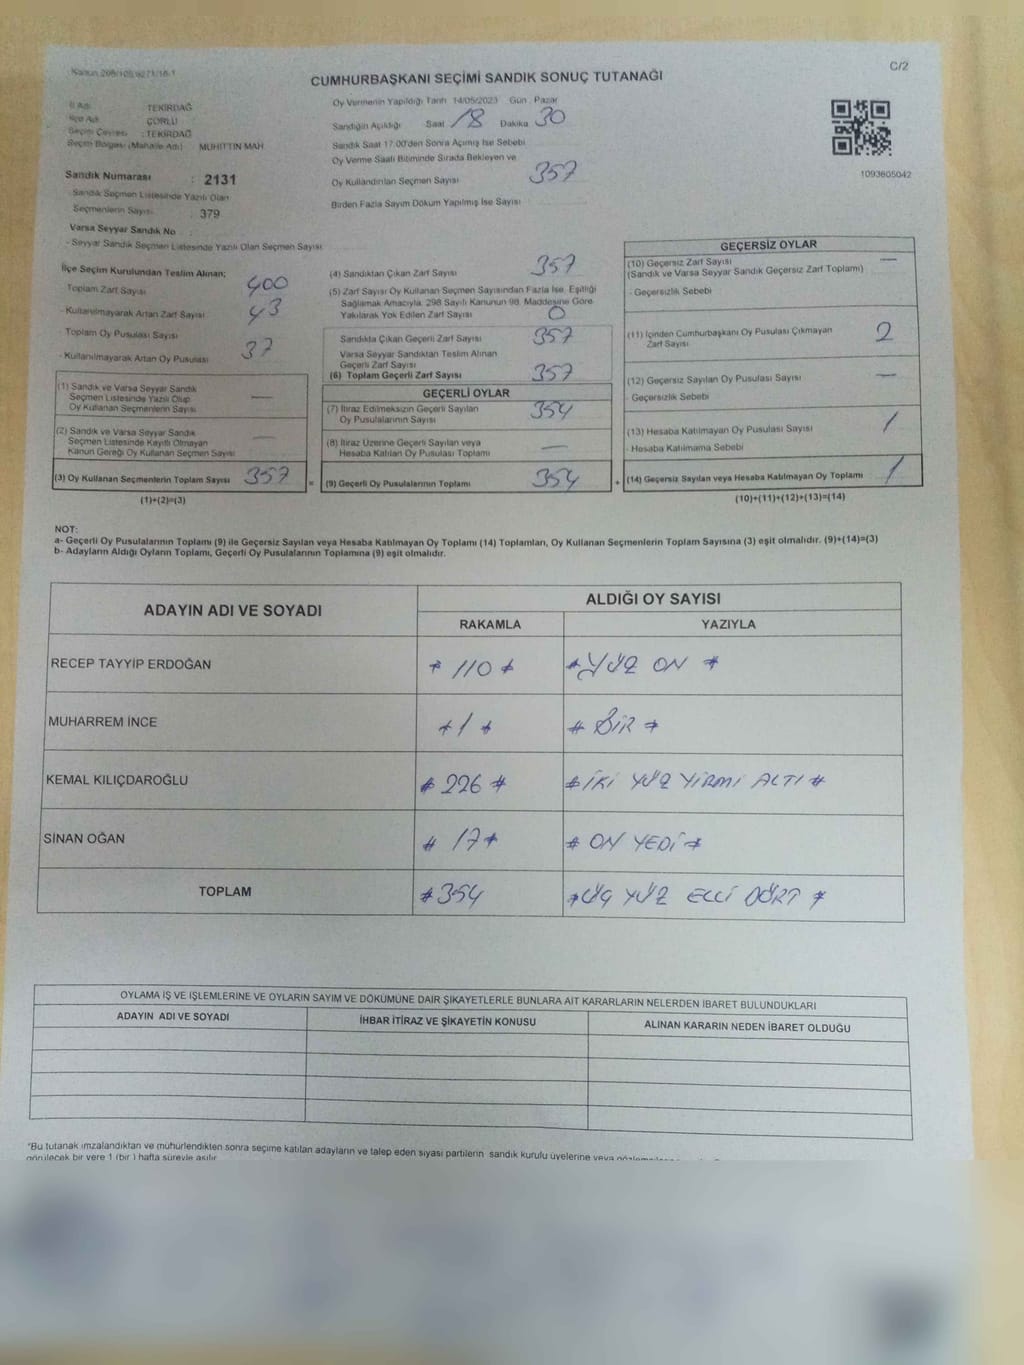 Kanun 298/105,6271/16-1
C/2
CUMHURBAŞKANI SEÇİMİ SANDIK SONUÇ TUTANAĞI
İl Adı : TEKİRDAĞ
İlçe Adı : ÇORLU
Seçim Çevresi : TEKİRDAĞ
Seçim Bölgesi (Mahalle Adı) MUHİTTİN MAH
Sandık Numarası : 2131
- Sandık Seçmen Listesinde Yazılı Olan
Seçmenlerin Sayısı : 379
Varsa Seyyar Sandık No
- Seyyar Sandık Seçmen Listesinde Yazılı Olan Seçmen Sayısı
Oy Vermenin Yapıldığı Tarih 14/05/2023 Gün : Pazar
Sandığın Açıldığı Saat 18 Dakika 30
Sandık Saat 17.00'den Sonra Açımış İse Sebebi
Oy Verme Saati Bitiminde Sırada Bekleyen ve
Oy Kullandırılan Seçmen Sayısı 357
Birden Fazla Sayım Döküm Yapılmış İse Sayısı
1093605042
İlçe Seçim Kurulundan Teslim Alınan;
Toplam Zarf Sayısı 400
- Kullanılmayarak Artan Zarf Sayısı 43
- Toplam Oy Pusulası Sayısı
- Kullanılmayarak Artan Oy Pusulası 37
(1) Sandık ve Varsa Seyyar Sandık
Seçmen Listesinde Yazılı Olup
Oy Kullanan Seçmenlerin Sayısı —
(2) Sandık ve Varsa Seyyar Sandık
Seçmen Listesinde Kayıtlı Olmayan
Kanun Gereği Oy Kullanan Seçmen Sayısı —
(3) Oy Kullanan Seçmenlerin Toplam Sayısı 357 =
(1)+(2)=(3)
(4) Sandıktan Çıkan Zarf Sayısı 357
(5) Zarf Sayısı Oy Kullanan Seçmen Sayısından Fazla İse, Eşitliği
Sağlamak Amacıyla, 298 Sayılı Kanunun 98. Maddesine Göre
Yakılarak Yok Edilen Zarf Sayısı 0
Sandıkta Çıkan Geçerli Zarf Sayısı 357
Varsa Seyyar Sandıktan Teslim Alınan
Geçerli Zarf Sayısı
(6) Toplam Geçerli Zarf Sayısı 357
GEÇERLİ OYLAR
(7) İtiraz Edilmeksizin Geçerli Sayılan
Oy Pusulalarının Sayısı 354
(8) İtiraz Üzerine Geçerli Sayılan veya
Hesaba Katılan Oy Pusulası Toplamı —
(9) Geçerli Oy Pusulalarının Toplamı 354 +
GEÇERSİZ OYLAR
(10) Geçersiz Zarf Sayısı —
(Sandık ve Varsa Seyyar Sandık Geçersiz Zarf Toplamı)
- Geçersizlik Sebebi
(11) İçinden Cumhurbaşkanı Oy Pusulası Çıkmayan
Zarf Sayısı 2
(12) Geçersiz Sayılan Oy Pusulası Sayısı —
- Geçersizlik Sebebi
(13) Hesaba Katılmayan Oy Pusulası Sayısı 1
- Hesaba Katılmama Sebebi
(14) Geçersiz Sayılan veya Hesaba Katılmayan Oy Toplamı 1
(10)+(11)+(12)+(13)=(14)
NOT:
a- Geçerli Oy Pusulalarının Toplamı (9) ile Geçersiz Sayılan veya Hesaba Katılmayan Oy Toplamı (14) Toplamları, Oy Kullanan Seçmenlerin Toplam Sayısına (3) eşit olmalıdır. (9)+(14)=(3)
b- Adayların Aldığı Oyların Toplamı, Geçerli Oy Pusulalarının Toplamına (9) eşit olmalıdır.
ADAYIN ADI VE SOYADI ALDIĞI OY SAYISI
RAKAMLA YAZIYLA
RECEP TAYYİP ERDOĞAN # 110 # # YÜZ ON #
MUHARREM İNCE # 1 # # BİR #
KEMAL KILIÇDAROĞLU # 226 # # İKİ YÜZ YİRMİ ALTI #
SİNAN OĞAN # 17 # # ON YEDİ #
TOPLAM # 354 # ÜÇ YÜZ ELLİ DÖRT #
OYLAMA İŞ VE İŞLEMLERİNE VE OYLARIN SAYIM VE DÖKÜMÜNE DAİR ŞİKAYETLERLE BUNLARA AİT KARARLARIN NELERDEN İBARET BULUNDUKLARI
ADAYIN ADI VE SOYADI İHBAR İTİRAZ VE ŞİKAYETİN KONUSU ALINAN KARARIN NEDEN İBARET OLDUĞU
"Bu tutanak imzalandıktan ve mühürlendikten sonra seçime katılan adayların ve talep eden siyasi partilerin sandık kurulu üyelerine veya
görülecek bir yere 1 (bir) hafta süreyle asılır